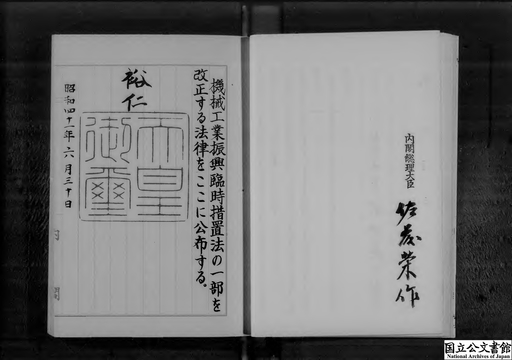 機械工業振興臨時措置法の一部を
改正する法律をここに公布する。
裕仁
天皇
御璽
昭和四十一年六月三十日
内閣総理大臣
佐藤榮作
国立公文書館
National Archives of Japan